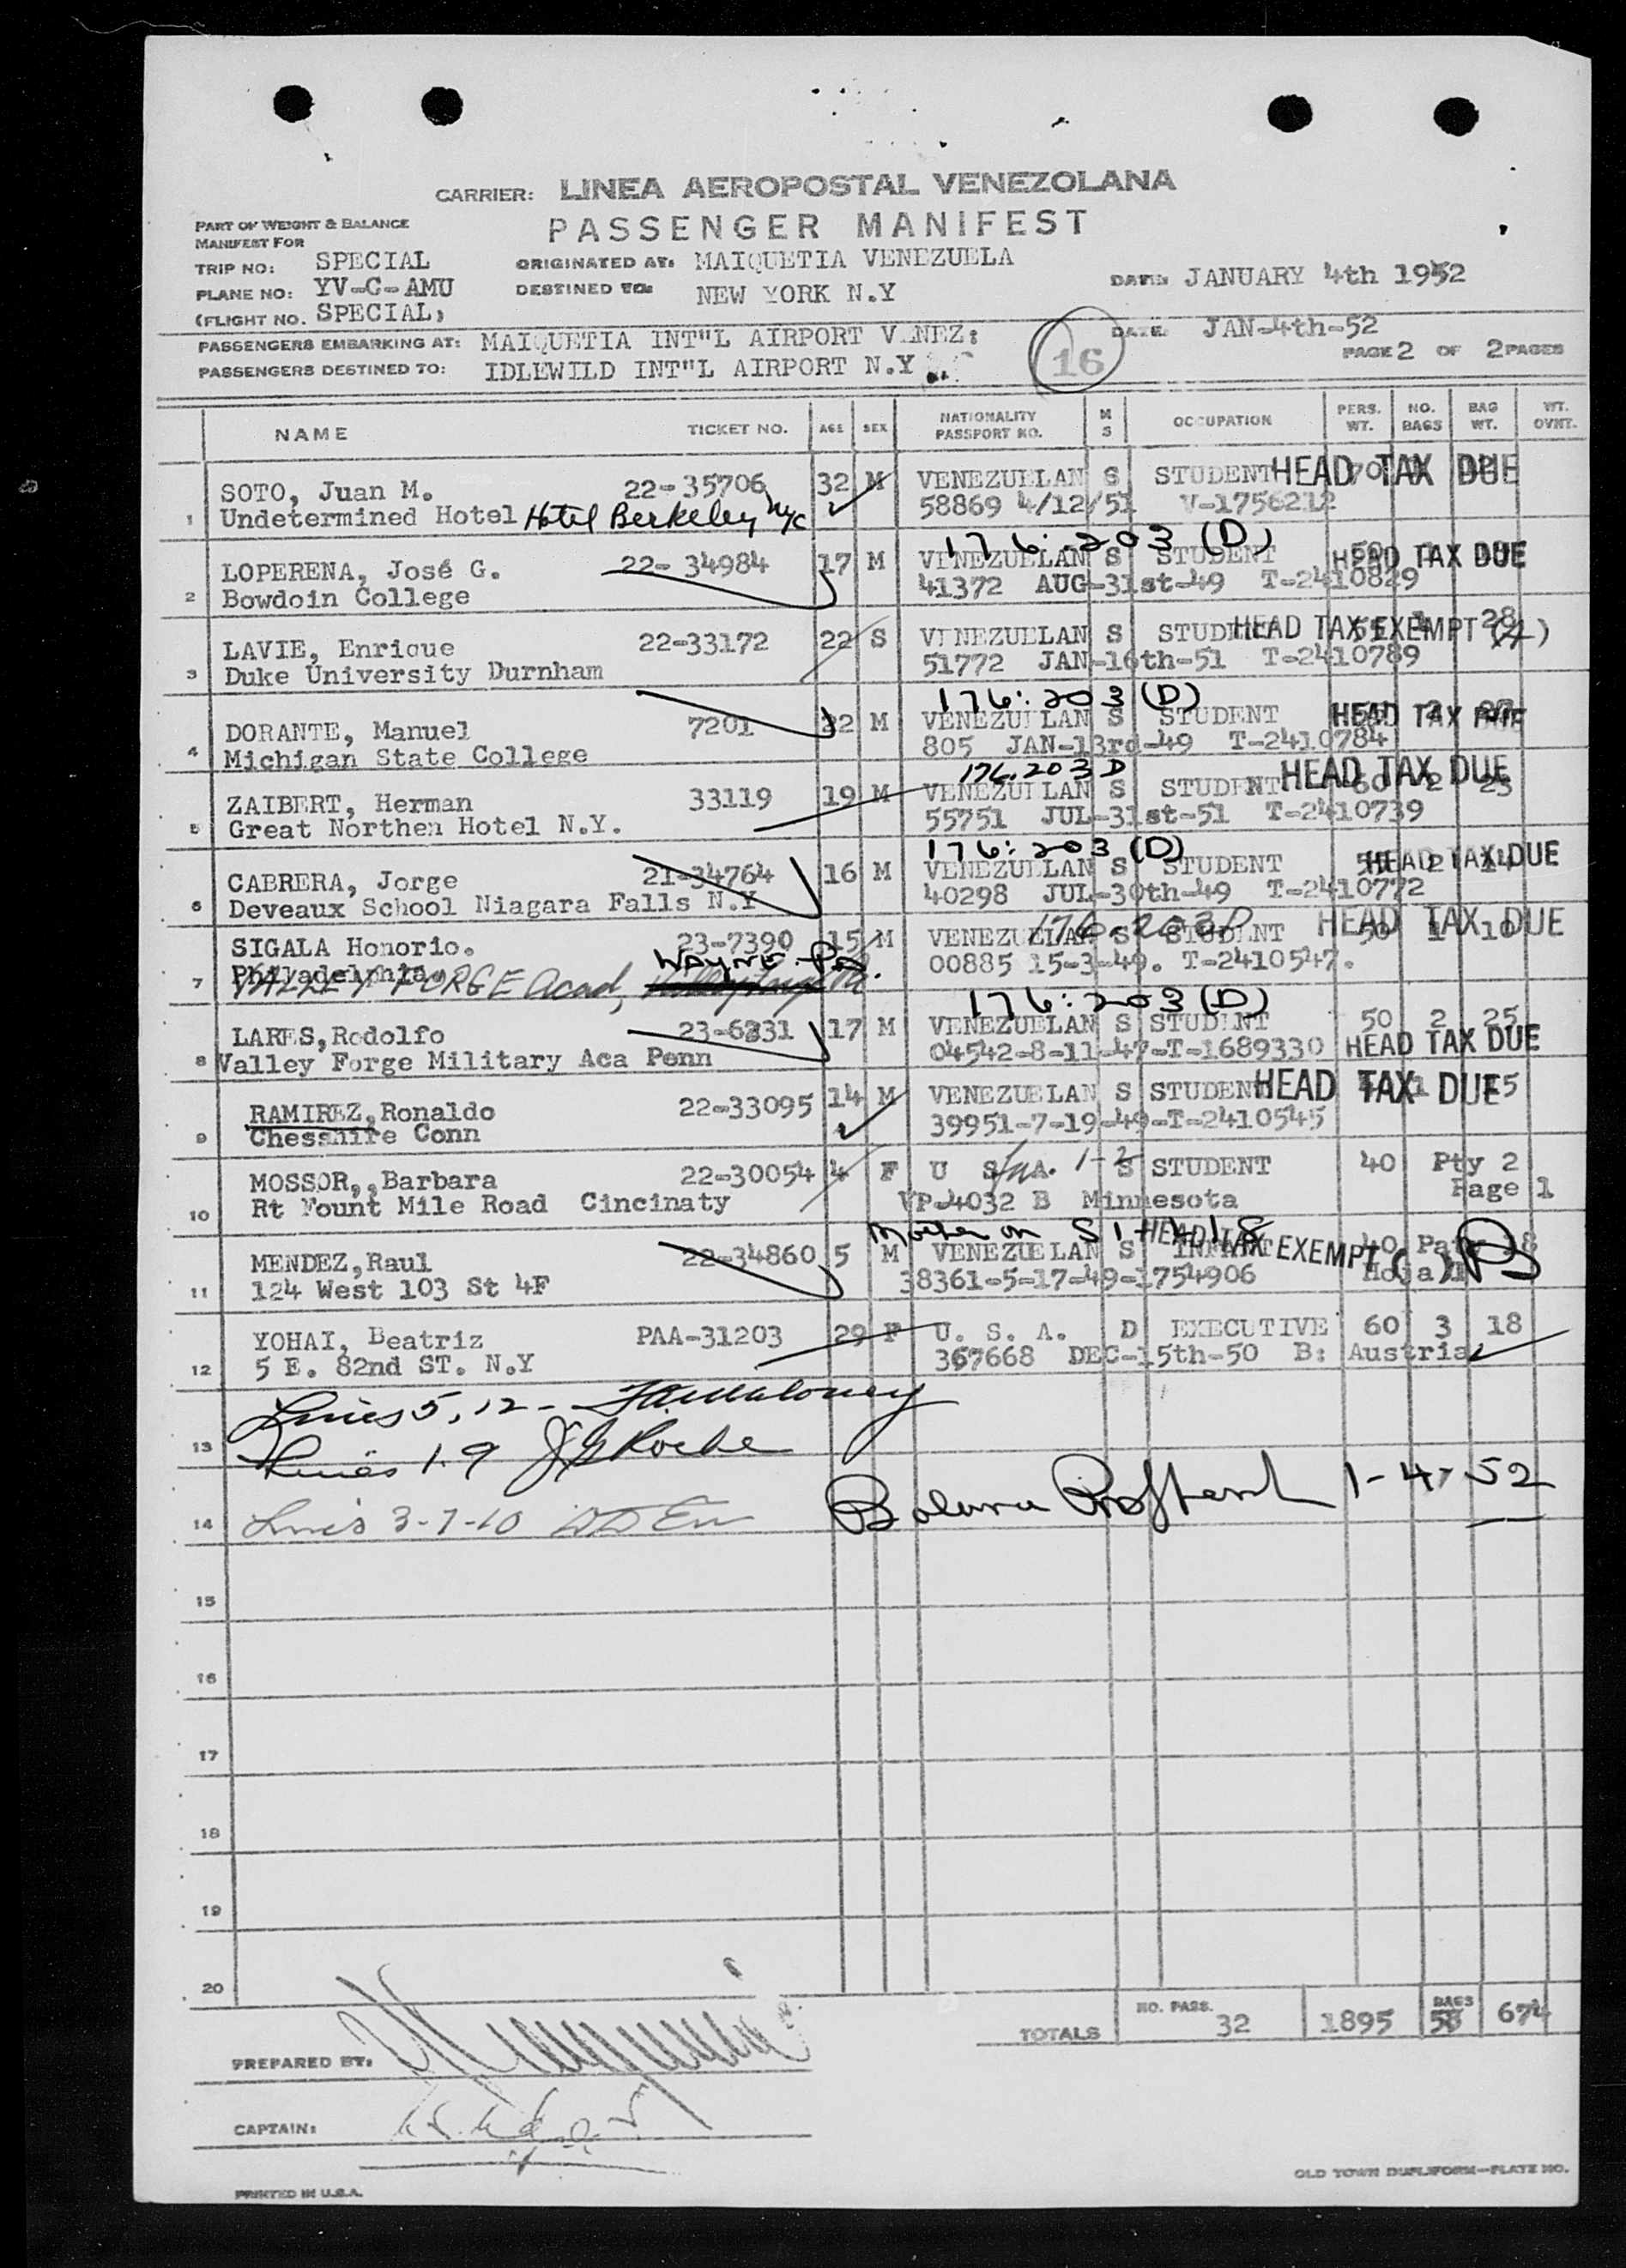 CARRIER: LINEA AEROPOSTAL VENEZOLANA
PASSENGER MANIFEST
PART OF WEIGHT & BALANCE
MANIFEST FOR
TRIP NO: SPECIAL ORIGINATED AT: MAIQUETIA VENEZUELA
DATE: JANUARY 4th 1952
PLANE NO: YV-C-AMU DESTINED TO: NEW YORK N.Y
(FLIGHT NO. SPECIAL)
PASSENGERS EMBARKING AT: MAIQUETIA INT"L AIRPORT V.NEZ: DATE: JAN-4th-52
16 PAGE 2 OF 2 PAGES
PASSENGERS DESTINED TO: IDLEWILD INT"L AIRPORT N.Y
NAME TICKET NO. AGE SEX NATIONALITY PASSPORT NO. M S OCCUPATION PERS. WT. NO. BAGS BAG WT. WT. OVNT.
SOTO, Juan M. 22-35706 32 M VENEZUELAN S STUDENT 70 HEAD TAX DUE
1 Undetermined Hotel Hotel Berkeley NYC 58869 4/12/51 V-1756212
176:203 (D)
LOPERENA, José G. 22-34984 17 M VENEZUELAN S STUDENT 50 HEAD TAX DUE
2 Bowdoin College 41372 AUG-31st-49 T-2410829
LAVIE, Enrique 22-33172 22 S VENEZUELAN S STUDENT HEAD TAX EXEMPT (4) 28
3 Duke University Durnham 51772 JAN-16th-51 T-2410789
176:203 (D)
DORANTE, Manuel 7201 22 M VENEZUELAN S STUDENT HEAD TAX DUE
4 Michigan State College 805 JAN-13rd-49 T-2410784
176.203 D
ZAIBERT, Herman 33119 19 M VENEZUELAN S STUDENT 60 2 25 HEAD TAX DUE
5 Great Northen Hotel N.Y. 55751 JUL-31st-51 T-2410739
176:203 (D)
CABRERA, Jorge 21-34764 16 M VENEZUELAN S STUDENT 2 HEAD TAX DUE
6 Deveaux School Niagara Falls N.Y 40298 JUL-30th-49 T-2410772
176.203D
SIGALA Honorio. 23-7390 15 M VENEZUELAN S STUDENT 50 1 10 HEAD TAX DUE
WAYNE Pa.
7 Philadelphia. VALLEY FORGE Acad, 00885 15-3-49. T-2410547.
176:203 (D)
LARES, Rodolfo 23-6331 17 M VENEZUELAN S STUDENT 50 2 25
8 Valley Forge Military Aca Penn 04542-8-11-47-T-1689330 HEAD TAX DUE
RAMIREZ, Ronaldo 22-33095 14 M VENEZUELAN S STUDENT 1 15 HEAD TAX DUE
9 Chesshire Conn 39951-7-19-49-T-2410545
MOSSOR,, Barbara 22-30054 4 F U S A. 1-2 S STUDENT 40 Pty 2
10 Rt Fount Mile Road Cincinaty VP-4032 B Minnesota Page 1
Mother on S 1-
MENDEZ, Raul 22-34860 5 M VENEZUELAN S INFANT HEAD TAX EXEMPT ( ) 40
11 124 West 103 St 4F 38361-5-17-49-1754906 Hoja 1
YOHAI, Beatriz PAA-31203 29 F U. S. A. D EXECUTIVE 60 3 18
12 5 E. 82nd ST. N.Y 367668 DEC-15th-50 B: Austria
Lines 5, 12 -
13 Lines 1.9 J G Roche
1-4-52
14 Lines 3-7-10
15
16
17
18
19
20
TOTALS NO. PASS. 32 1895 BAGS 58 674
PREPARED BY:
CAPTAIN:
PRINTED IN U.S.A.
OLD TOWN DUPLIFORM-PLATE NO.